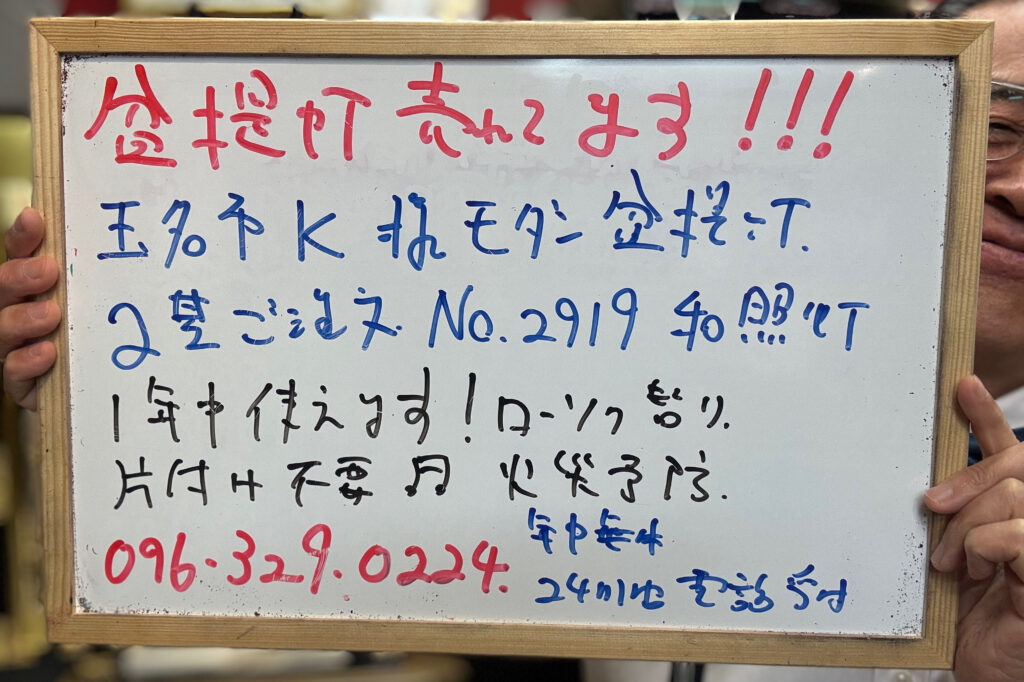 盆提灯売れてます!!!
玉名市K様モダン盆提灯.
2基ご注文 No.2919 和照灯
1年中使えます!ローソク替り.
片付け不要♬ 火災予防.
096.329.0224.
年中無休
24hrs 電話受付